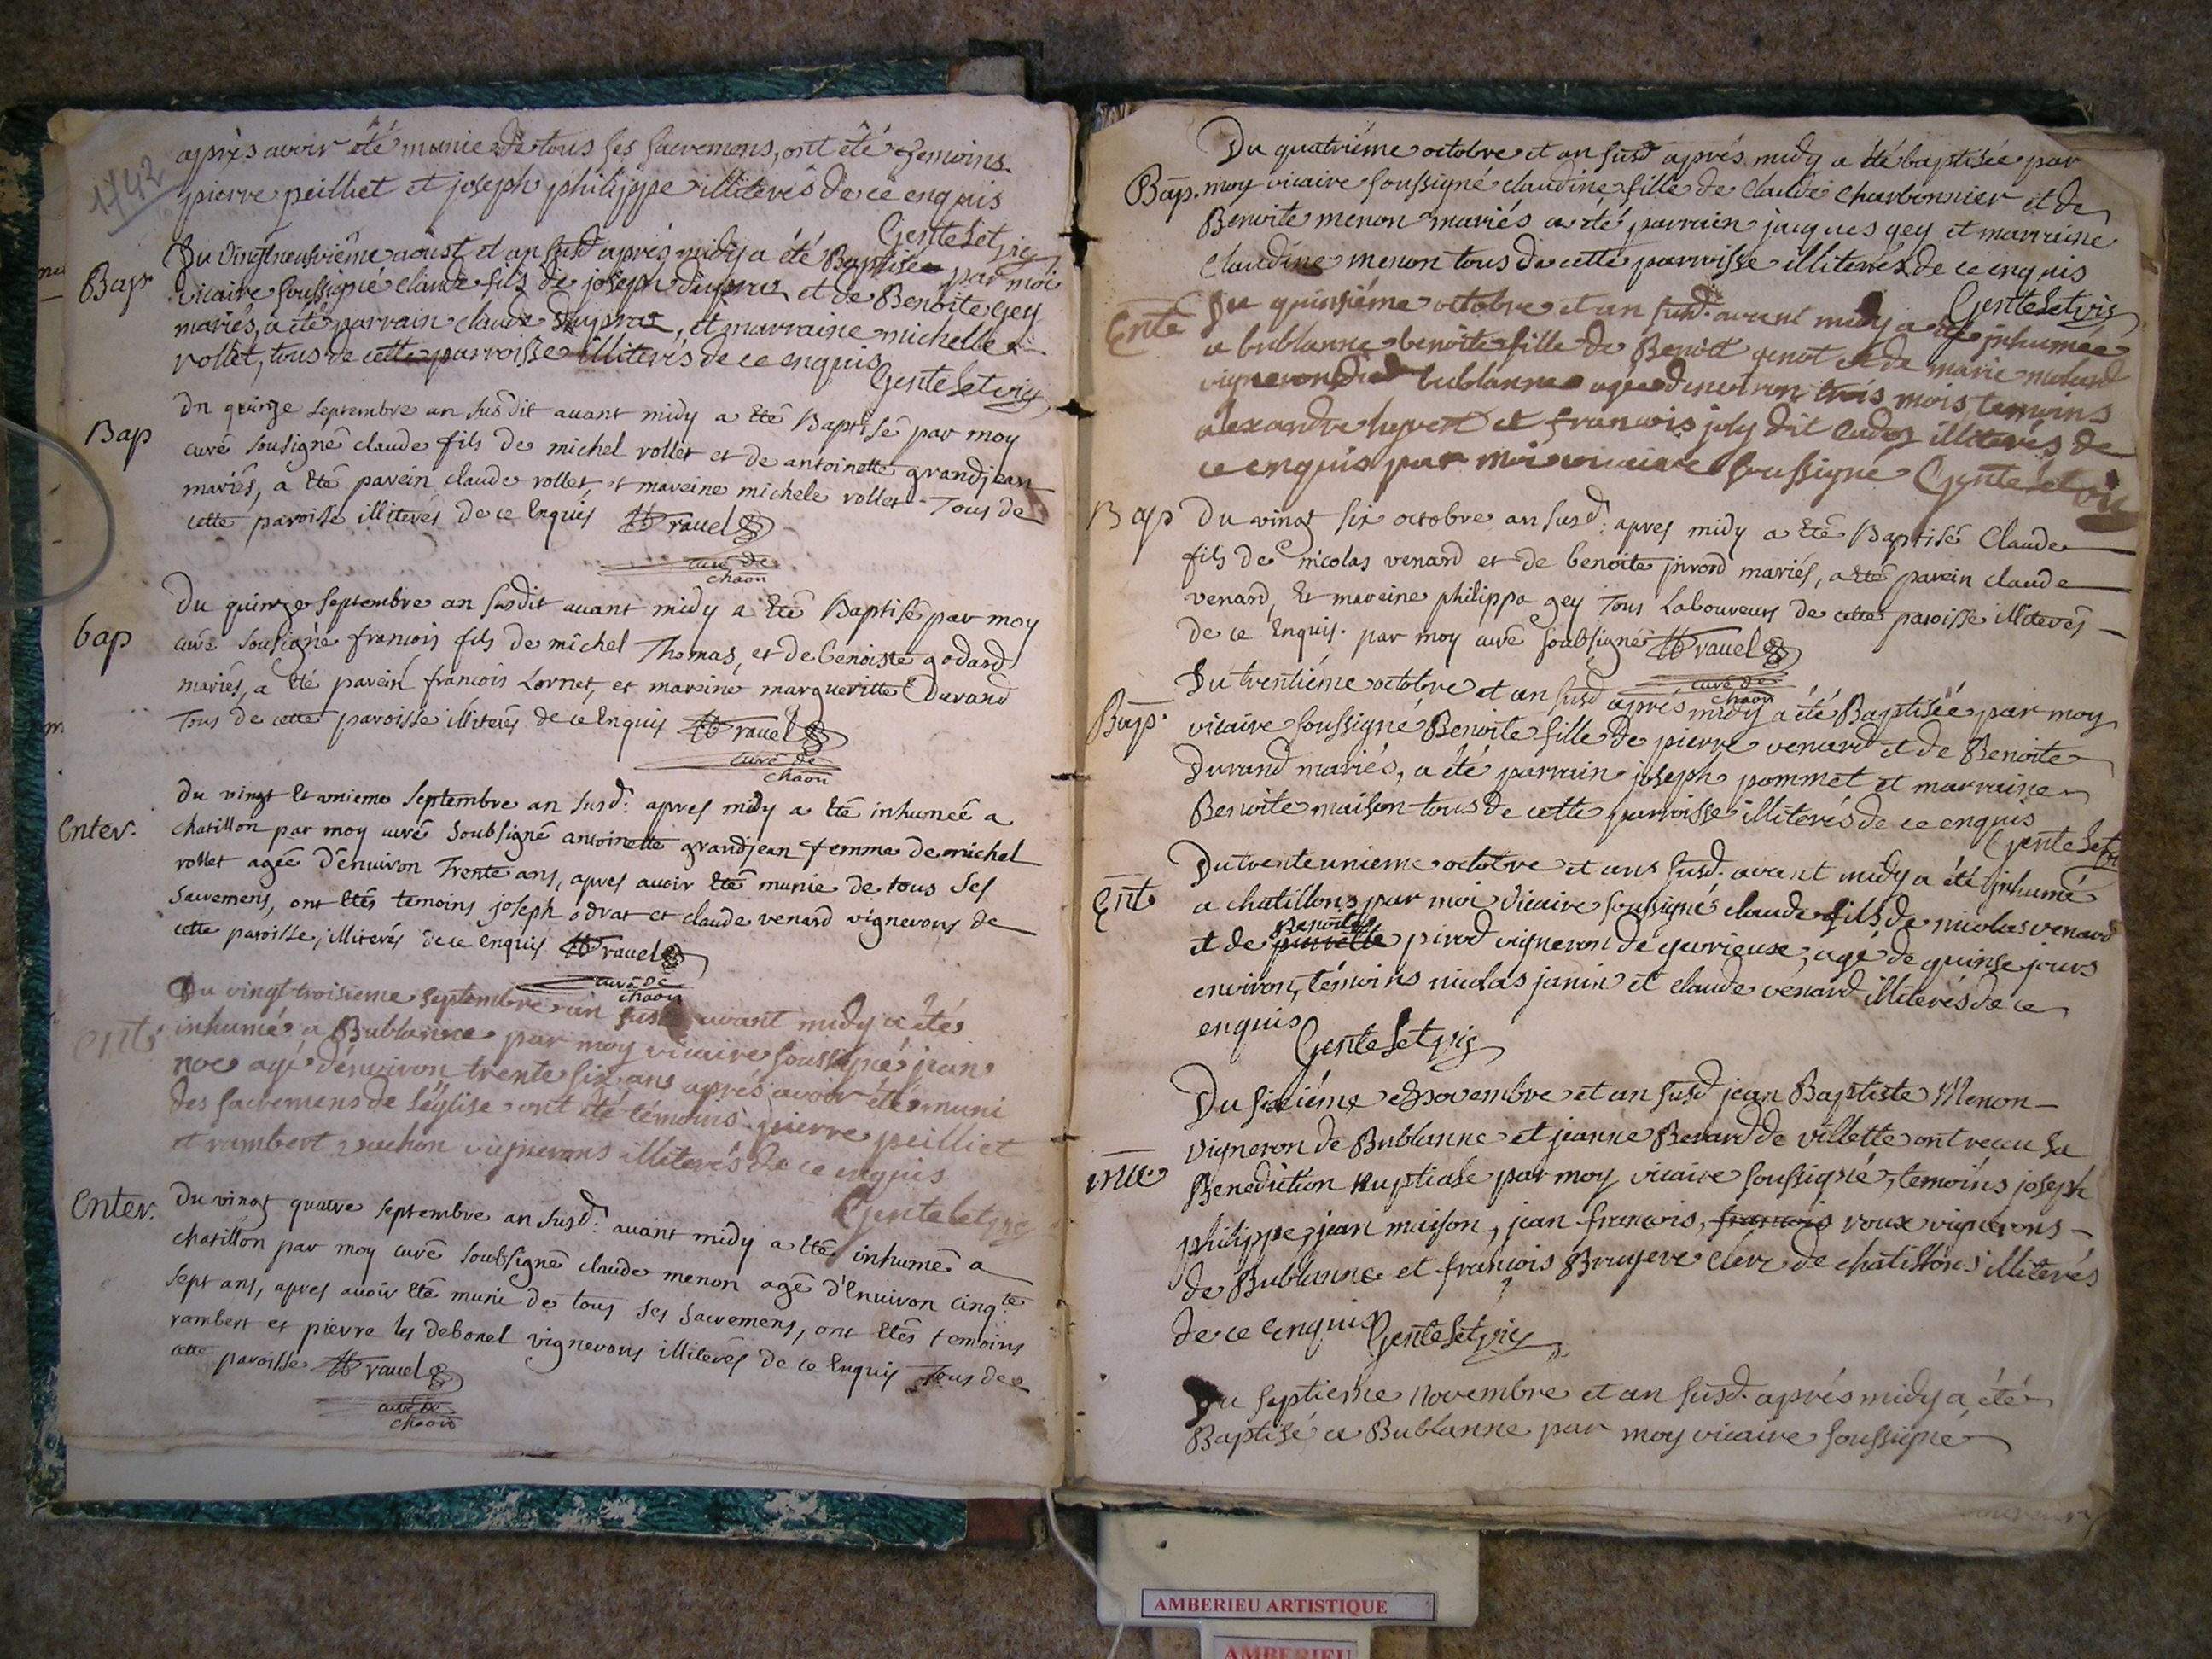 1742
après avoir été munie de tous ses sacremens, ont été temoins
pierre peilliet et joseph philippe illiterés de ce enquis
Gentelet vic
Bap
Du vingtneuvième aoust et an susd après midy a été Baptisé par moi
vicaire soussigné claude fils de joseph dupras et de Benoite gey
mariés, a été parrain claude dupras, et marraine michelle
rollet, tous de cette parroisse illiterés de ce enquis
Gentelet vic
Bap
Du quinze septembre an susdit avant midy a été Baptisé par moy
curé sousigné claude fils de michel rollet et de antoinette grandjean
mariés, a été parein claude rollet, et mareine michele rollet Tous de
cette paroisse illiterés de ce Enquis ravel
curé de
chaon
bap
Du quinze septembre an susdit avant midy a été Baptisé par moy
curé sousigné francois fils de michel Thomas, et de benoiste godard
mariés, a été parein francois Lornet, et mareine margueritte Durand
Tous de cette paroisse illiterés de ce Enquis ravel
curé de
chaon
Enter.
Du vingt et unieme septembre an susd: apres midy a été inhumeé a
chatillon par moy curé soubsigné antoinette grandjean femme de michel
rollet ageé d'Enuiron Trente ans, apres auoir été munie de tous ses
sacremens, ont étés temoins joseph odrat et claude venard vignerons de
cette paroisse, illiterés de ce Enquis ravel
curé de
chaon
ent
Du vingt troisieme septembre an susd avant midy a été
inhumé a Bublanne par moy vicaire soussigné jean
noe agé d'environ trente six ans après avoir été muni
des sacremens de l'église ont été témoins pierre peilliet
et rambert vachon vignerons illiterés de ce enquis
Gentelet vic
Enter.
Du vingt quatre septembre an susd: avant midy a été inhumé a
chatillon par moy curé soubsigné claude menon agé d'Enuiron cinqte
sept ans, apres auoir été muni de tous ses sacremens, ont étés temoins
rambert et pierre les debonel vignerons illiterés de ce Enquis Tous de
cette paroisse ravel
curé de
chaon
Du quatriéme octobre et an susd aprés midy a été baptisée par
Bap.
moy vicaire soussigné claudine fille de claude charbonnier et de
Benoite menon mariés a été parrain jacques gey et marraine
claudine menon tous de cette parroisse illiterés de ce enquis
Gentelet vic
Ente
Du quinsiéme octobre et an susd. avant midy a été inhumée
a bublanne benoite fille de Benoit genot et de marie
vigneron de bublanne agée d'environ trois mois, temoins
alexandre et francois joly dit illiterés de
ce enquis par moi vicaire soussigné Gentelet vic
Bap
Du vingt six octobre an susd: apres midy a été Baptisé Claude
fils de nicolas venard et de benoite pirod mariés, a été parein claude
venard, Et mareine philippa gey Tous Laboureurs de cette paroisse illiterés
de ce Enquis. par moy curé soubsigné ravel
curé de
chaon
Bap.
Du trentiéme octobre et an susd après midy a été Baptisée par moy
vicaire soussigné Benoite fille de pierre venard et de Benoite
Durand mariés, a été parrain joseph pommet et marraine
Benoite maison tous de cette parroisse illiterés de ce enquis
Gentelet vic
Ent
Du trente unieme octobre et ans susd. avant midy a été inhumé
a chatillons par moi vicaire soussigné claude fils de nicolas venard
Benoite
et de pirod vigneron de gevrieuse, agé de quinse jours
environ, témoins nicolas janin et claude venard illiterés de ce
enquis
Gentelet vic
Du sixiéme Novembre et an susd jean Baptiste Menon
vigneron de Bublanne et jeanne Berard de villette ont reçu la
Benediction nuptiale par moy vicaire soussigné, temoins joseph
philippe, jean maison, jean francois, francois roux vignerons
de Bublanne et francois Bruyere clerc de chatillons illiterés
de ce enquis Gentelet vic
Du septieme novembre et an susd. aprés midy a été
Baptisé a Bublanne par moy vicaire soussigné
AMBERIEU ARTISTIQUE
AMBERIEU